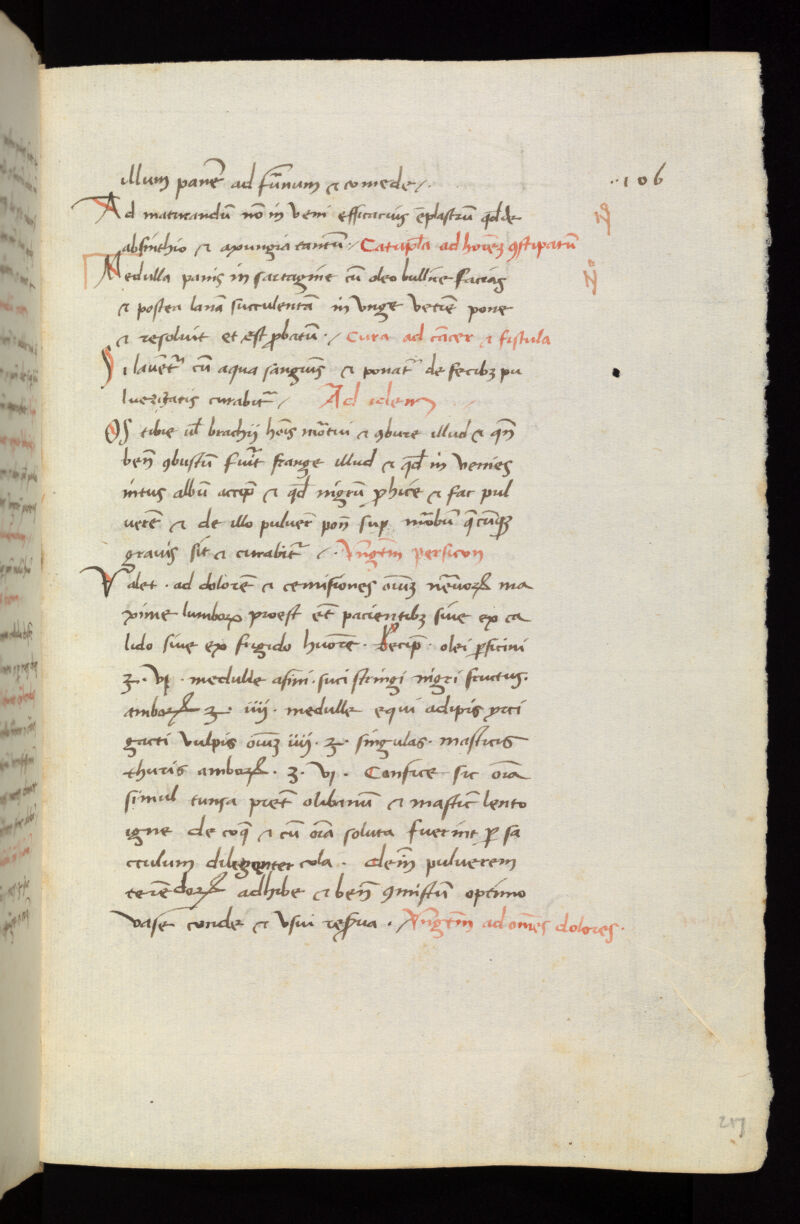 illum panē ad fūnum & comede /.
.. 106
Ad maturandū nō in veni efficacius ēplastrū qđ de
absinthio & axungia tantū ./ Catapl̄a ad hoīez ꝯstipatū
Medulla panis in sartagine cū oleo bullire facias
& postea lanā succulentā in unge vētrē pone
& resoluit et est ꝓbatū ./ Cura ad cācer & fistula
Si lauet᷑ cū aqua sanguīs & ponat᷑ de fecibꝫ pu
luerizatis curabit᷑ / Ad idem
Os tibie ul̄ brachij hoīs mortui & ꝯbure illud & qn̄
ben̄ ꝯbustū fuīt frange illud & qđ in venies
intus albū accip̄ & qđ nigrū ꝓhice & fac pul
uerē & de illo puluer̄ pon̄ sup̄ morbū q̄cūqꝫ
grauis sit & curabit᷑ /. Vngtm̄ persicon
Valet . ad dolorē & cemisiones oīuꝫ neruoꝝ ma
xime lumboꝝ prodest et̄ pacientibꝫ siue ex ca
lido siue ex frigido huōre . Recip̄ . olei ꝑsicini
ʒ . vj . medulle asini . suci stringi nigri fructus .
amboꝝ ʒ . iiij . medulle equi adipis yrci
gacti vulpis oīuꝫ iiij . ʒ . singulas . masticis
thuris amboꝝ . ʒ . vj . Confice sic oīa
simul tunsa pret̄ olibanū & mastic̄ lento
igne de coq̄ & cū oīa soluta fuerint ꝑ sa
cculum diligenter cola . dem̄ puluerem
terēdoꝝ adhibe & ben̄ ꝯmistū optimo
vase conde & usui res̄ua . Vngtm̄ ad om̄es dolores .
217